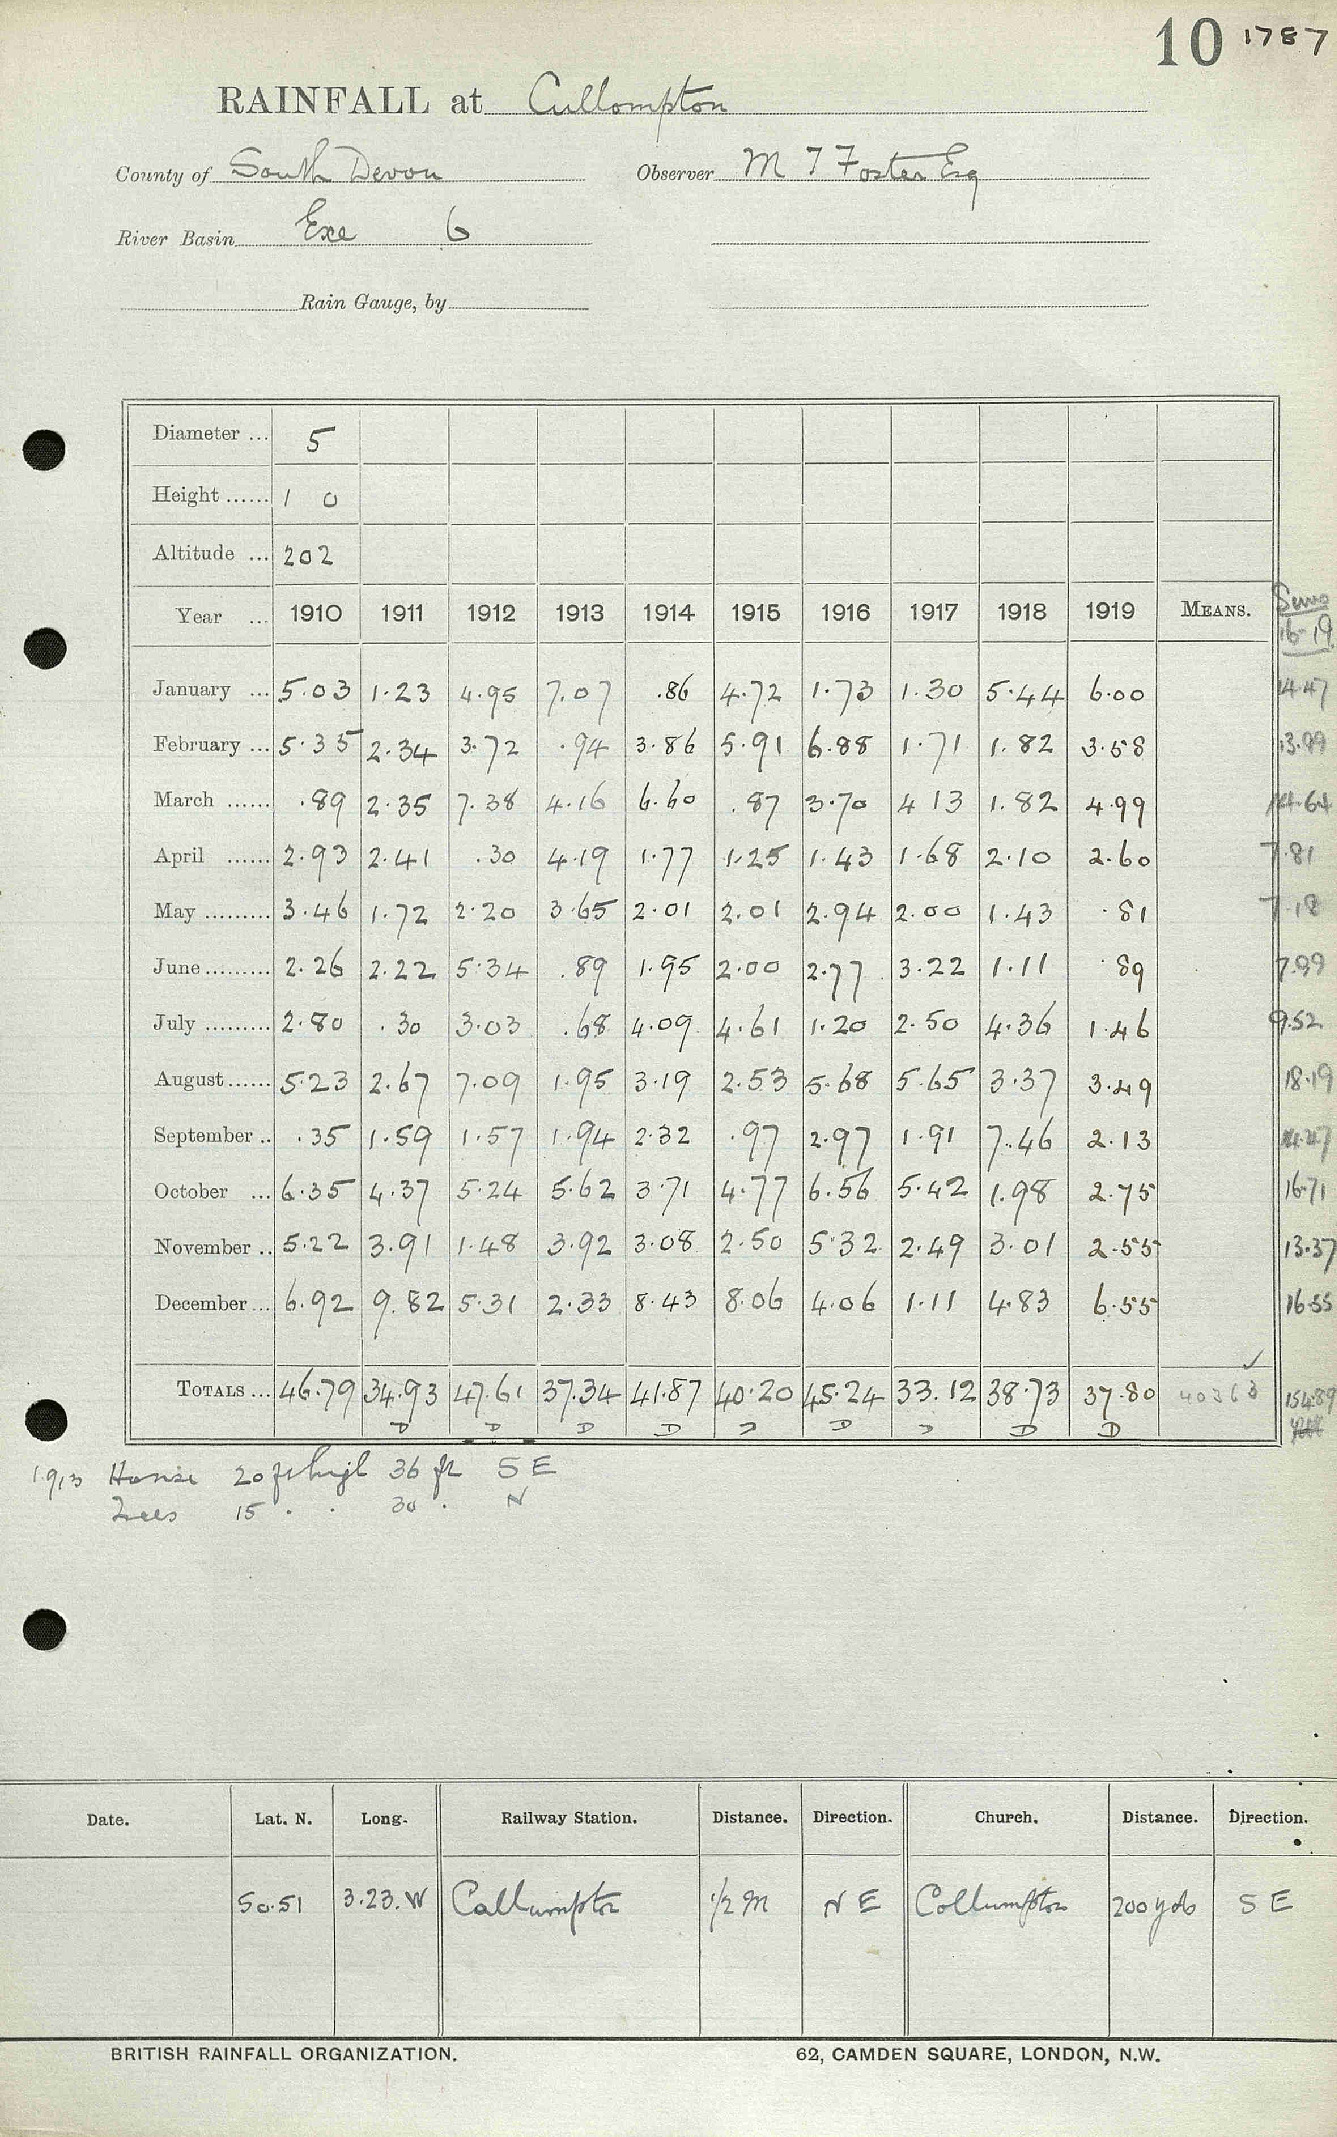 10 1787
RAINFALL at Cullompton
County of South Devon Observer M T Foster Esq
River Basin Exe 6
Rain Gauge, by
Diameter ... 5
Height ...... 1 0
Altitude ... 202
Year ... 1910 1911 1912 1913 1914 1915 1916 1917 1918 1919 MEANS. Sums 16-19
January ... 5.03 1.23 4.95 7.07 .86 4.72 1.73 1.30 5.44 6.00 14.47
February ... 5.35 2.34 3.72 .94 3.86 5.91 6.88 1.71 1.82 3.58 13.99
March ...... .89 2.35 7.38 4.16 6.60 .87 3.70 4 13 1.82 4.99 14.64
April ...... 2.93 2.41 .30 4.19 1.77 1.25 1.43 1.68 2.10 2.60 7.81
May ......... 3.46 1.72 2.20 3.65 2.01 2.01 2.94 2.00 1.43 .81 7.18
June ......... 2.26 2.22 5.34 .89 1.95 2.00 2.77 3.22 1.11 .89 7.99
July ......... 2.80 .30 3.03 .68 4.09 4.61 1.20 2.50 4.36 1.46 9.52
August ...... 5.23 2.67 7.09 1.95 3.19 2.53 5.68 5.65 3.37 3.49 18.19
September .. .35 1.59 1.57 1.94 2.32 .97 2.97 1.91 7.46 2.13 14.47
October ... 6.35 4.37 5.24 5.62 3.71 4.77 6.56 5.42 1.98 2.75 16.71
November .. 5.22 3.91 1.48 3.92 3.08 2.50 5.32 2.49 3.01 2.55 13.37
December ... 6.92 9.82 5.31 2.33 8.43 8.06 4.06 1.11 4.83 6.55 16.55
TOTALS ... 46.79 34.93 47.61 37.34 41.87 40.20 45.24 33.12 38.73 37.80 40363 154.89
D D D D D D D D D
1913 House 20 ft high 36 ft S E
Trees 15 . . 30 . N
Date. Lat. N. Long. Railway Station. Distance. Direction. Church. Distance. Direction.
50.51 3.23.W Callumpton 1/2 M N E Collumpton 200 yds S E
BRITISH RAINFALL ORGANIZATION. 62, CAMDEN SQUARE, LONDON, N.W.